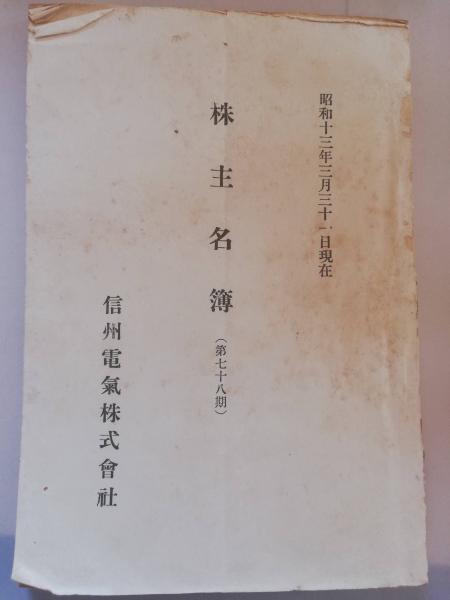 昭和十三年三月三十一日現在
株主名簿(第七十八期)
信州電氣株式會社